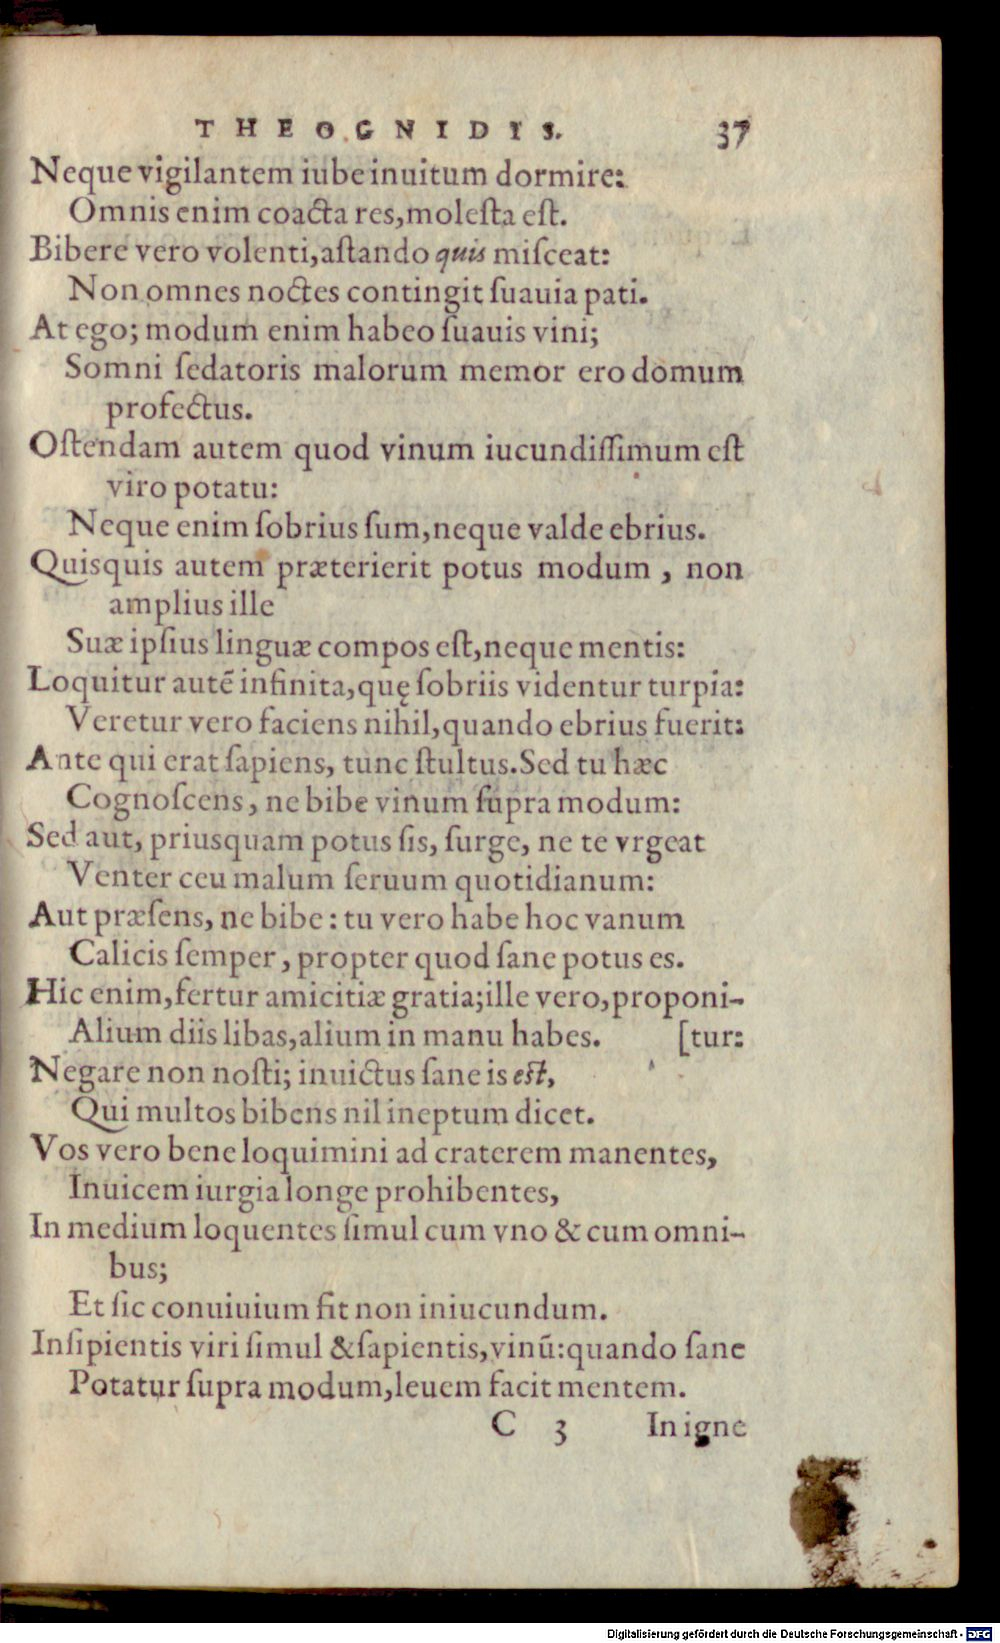 THEOGNIDIS. 37
Neque vigilantem iube inuitum dormire:
Omnis enim coacta res, molesta est.
Bibere vero volenti, astando quis misceat:
Non omnes noctes contingit suauia pati.
At ego; modum enim habeo suauis vini;
Somni sedatoris malorum memor ero domum
profectus.
Ostendam autem quod vinum iucundissimum est
viro potatu:
Neque enim sobrius sum, neque valde ebrius.
Quisquis autem præterierit potus modum, non
amplius ille
Suæ ipsius linguæ compos est, neque mentis:
Loquitur autē infinita, quę sobriis videntur turpia:
Veretur vero faciens nihil, quando ebrius fuerit:
Ante qui erat sapiens, tunc stultus. Sed tu hæc
Cognoscens, ne bibe vinum supra modum:
Sed aut, priusquam potus sis, surge, ne te vrgeat
Venter ceu malum seruum quotidianum:
Aut præsens, ne bibe: tu vero habe hoc vanum
Calicis semper, propter quod sane potus es.
Hic enim, fertur amicitiæ gratia; ille vero, proponi-
Alium diis libas, alium in manu habes. [tur:
Negare non nosti; inuictus sane is est,
Qui multos bibens nil ineptum dicet.
Vos vero bene loquimini ad craterem manentes,
Inuicem iurgia longe prohibentes,
In medium loquentes simul cum vno & cum omni-
bus;
Et sic conuiuium fit non iniucundum.
Insipientis viri simul & sapientis, vinū: quando sane
Potatur supra modum, leuem facit mentem.
C 3 In igne
Digitalisierung gefördert durch die Deutsche Forschungsgemeinschaft - DFG